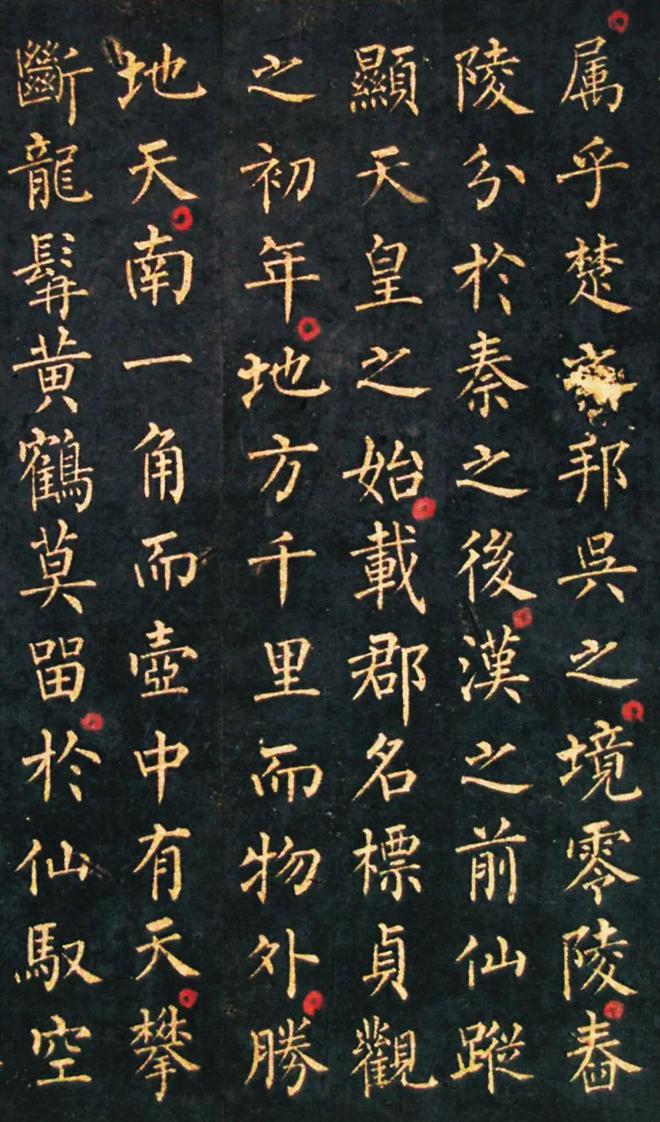 属乎楚邦吳之境零陵舂
陵分於秦之後漢之前仙蹤
顯天皇之始載郡名標貞觀
之初年地方千里而物外勝
地天南一角而壺中有天攀
斷龍髯黄鶴莫畱於仙馭空